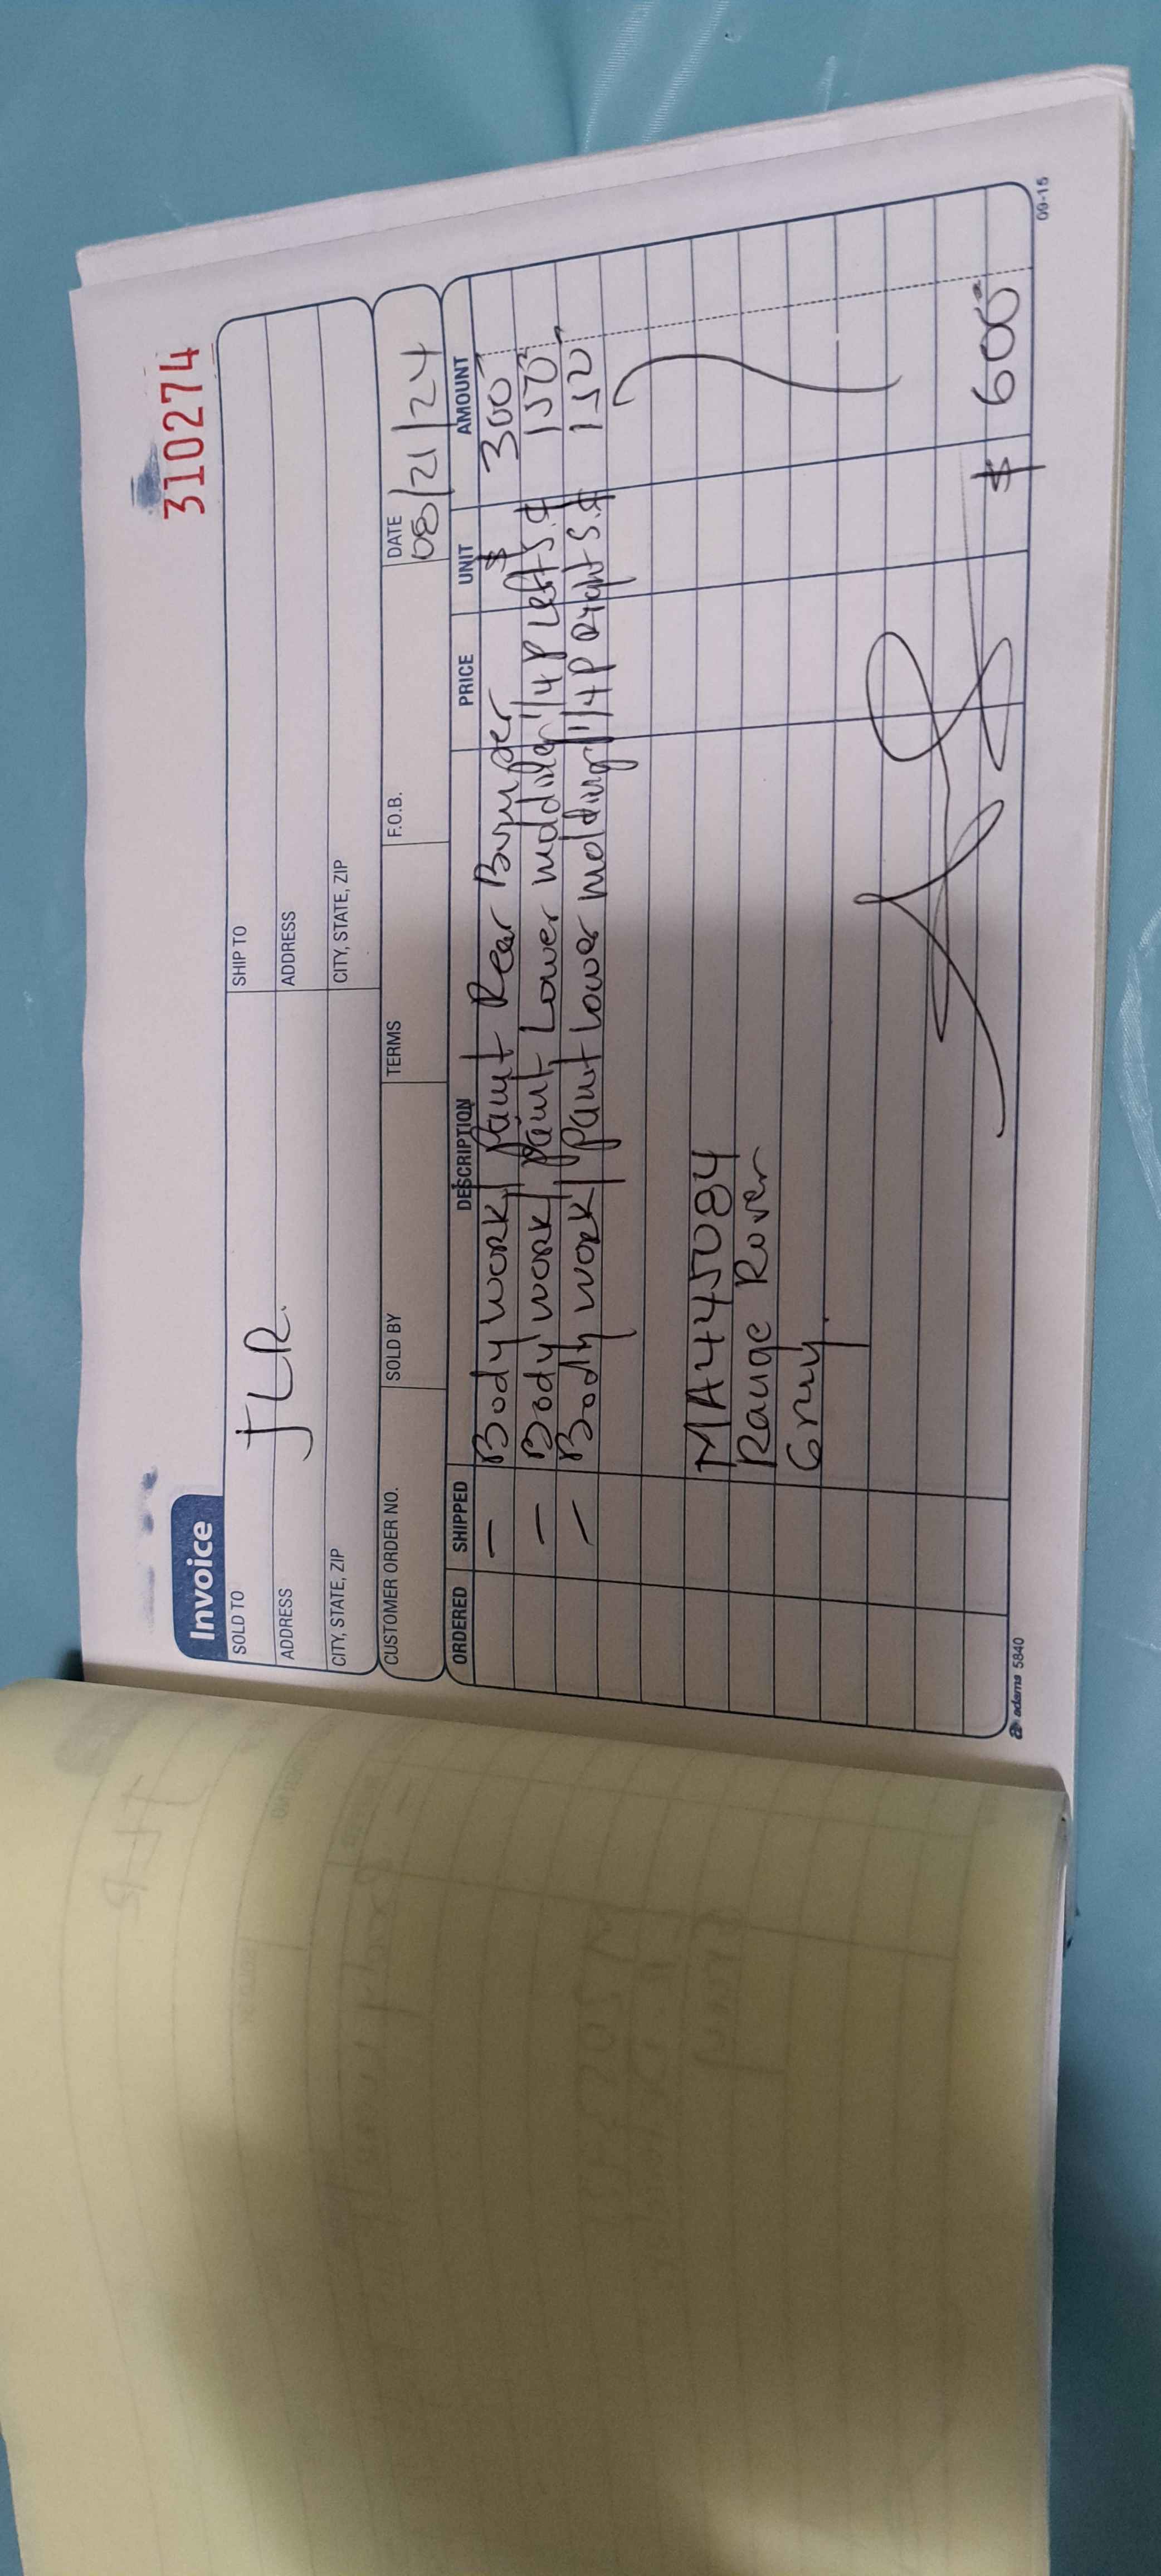 310274
Invoice
SOLD TO JLR. SHIP TO
ADDRESS ADDRESS
CITY, STATE, ZIP CITY, STATE, ZIP
CUSTOMER ORDER NO. SOLD BY TERMS F.O.B. DATE 08/21/24
ORDERED SHIPPED DESCRIPTION PRICE UNIT AMOUNT
- Body work/Paint Rear Bumper $ 300
- Body work/Paint Lower molding 1/4 P Left S. 150
- Body work/Paint Lower molding 1/4 P Right S. 150
MA445084
Range Rover
Gray.
$ 600
adams 5840 09-15